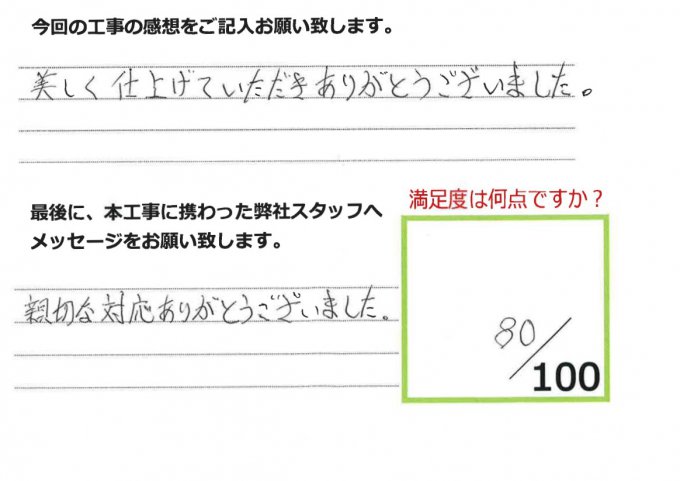 今回の工事の感想をご記入お願い致します。
美しく仕上げていただきありがとうございました。
最後に、本工事に携わった弊社スタッフへ
メッセージをお願い致します。
親切な対応ありがとうございました。
満足度は何点ですか？
80/100